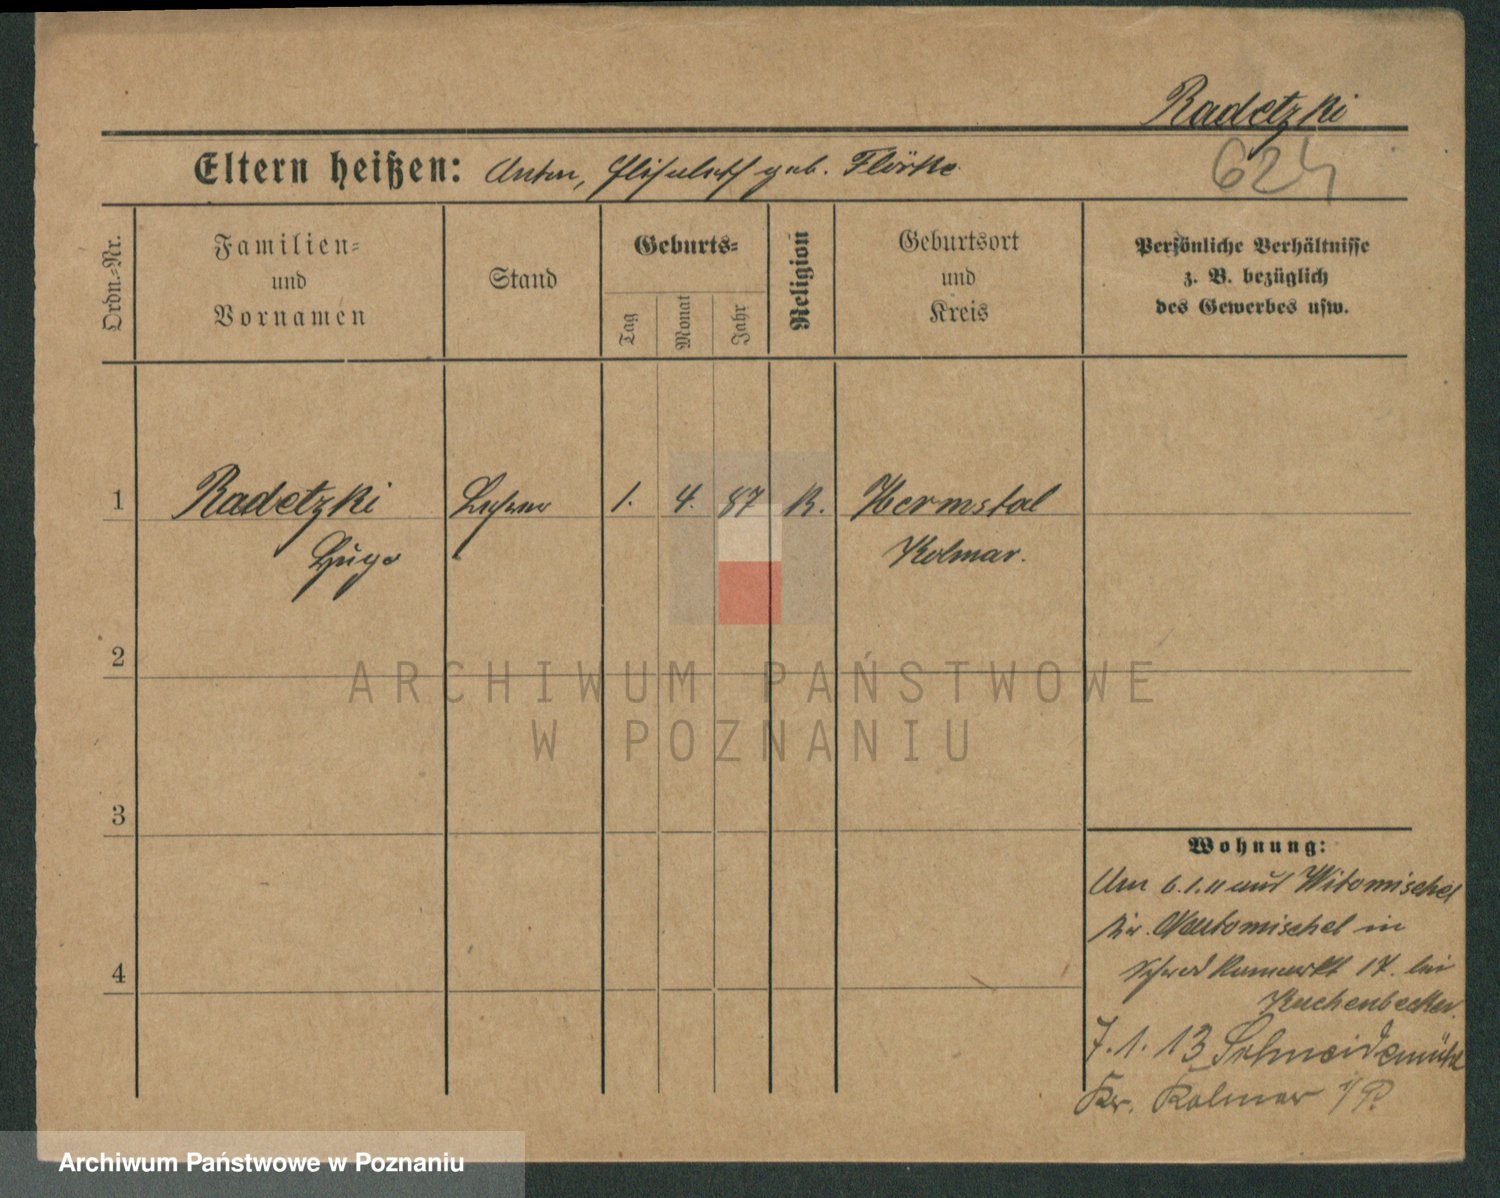 Radetzki
624
Eltern heißen: Anton, Elisabeth geb. Flörke
Ordn.-Nr.
Familien-
und
Vornamen
Stand
Geburts-
Tag
Monat
Jahr
Religion
Geburtsort
und
Kreis
Persönliche Verhältnisse
z. B. bezüglich
des Gewerbes usw.
1 Radetzki Lehrer 1. 4. 87 K. Hermstal
Hugo Kolmar.
2
3
4
Wohnung:
Am 6.1.11 aus Witomischel
Kr. Neutomischel in
17. bei
Kuchenbecker.
7.1.13 Schneidemühl
Kr. Kolmar i/P.
ARCHIWUM PAŃSTWOWE
W POZNANIU
Archiwum Państwowe w Poznaniu